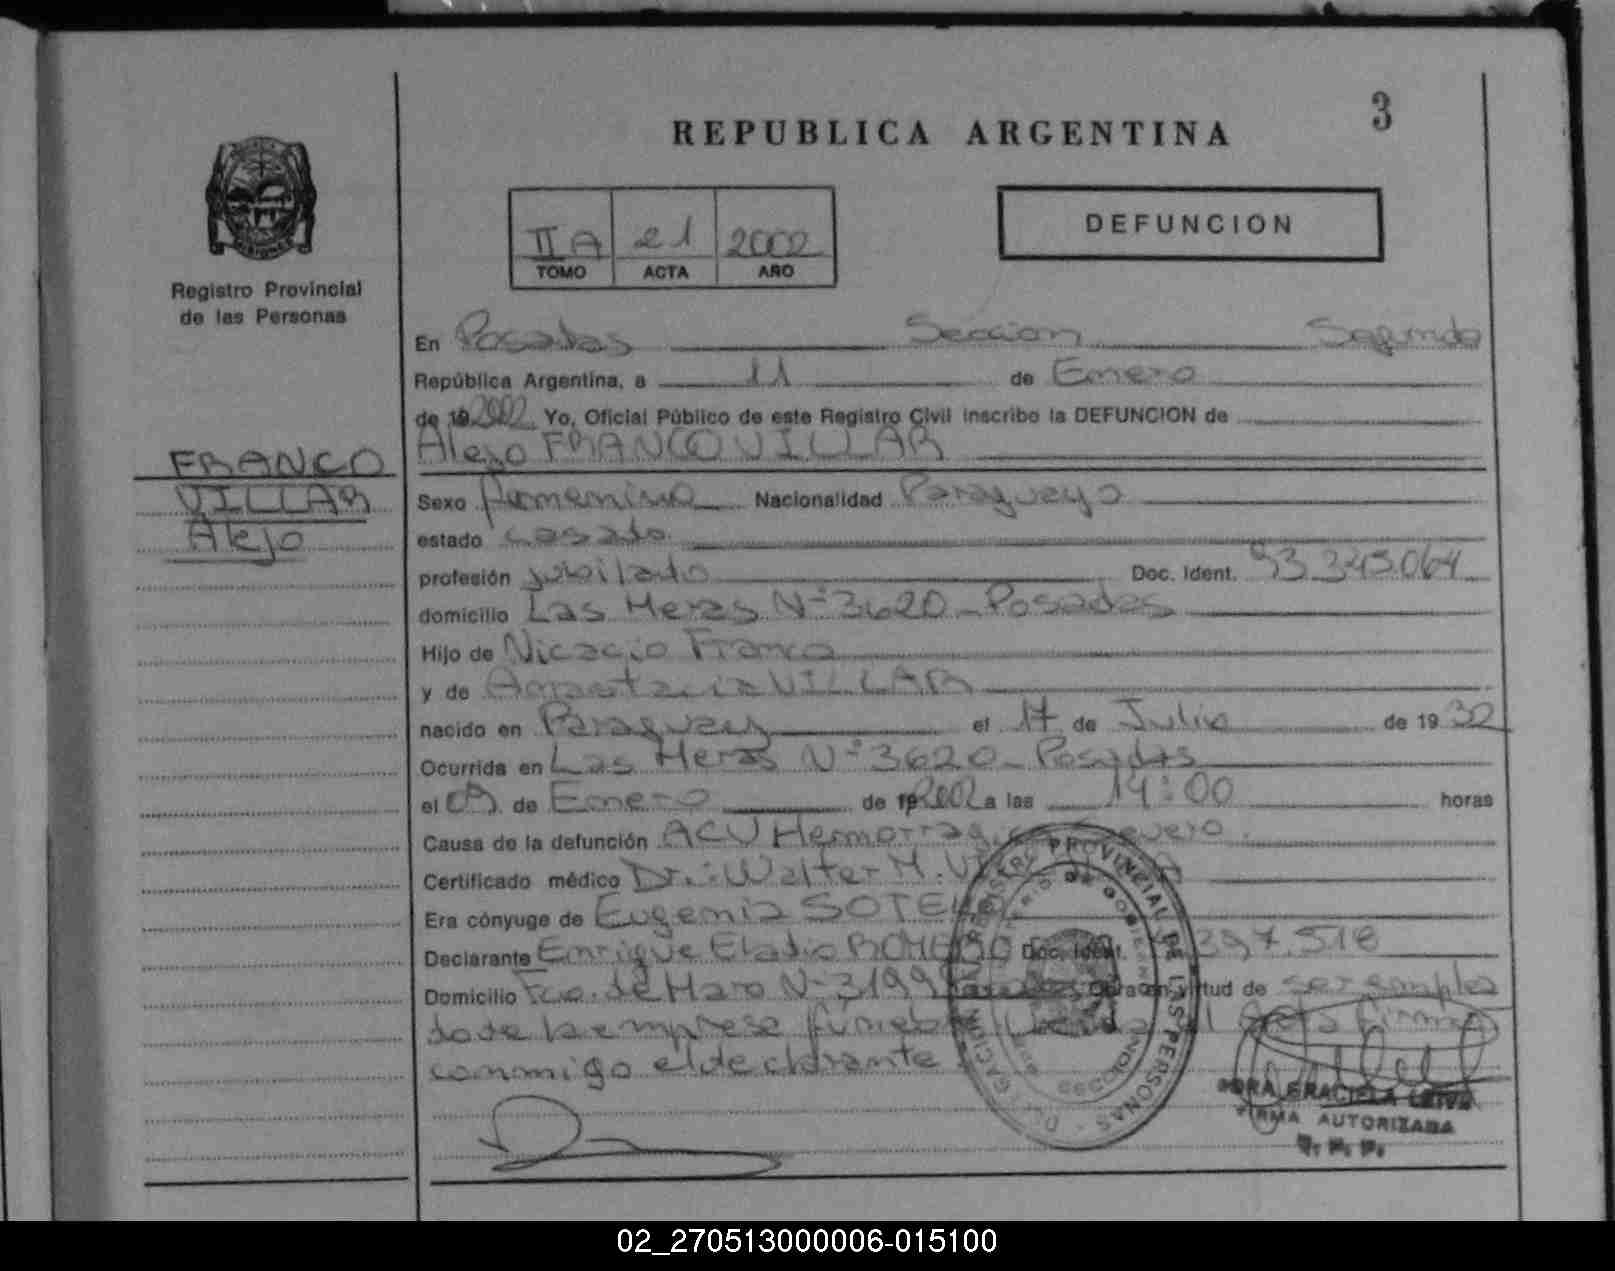 3
REPUBLICA ARGENTINA
DEFUNCION
II A 21 2002
TOMO ACTA AÑO
Registro Provincial
de las Personas
En Posadas Seccion Segunda
República Argentina, a 11 de Enero
de 19 2002 Yo, Oficial Público de este Registro Civil inscribo la DEFUNCION de
Alejo FRANCO VILLAR
FRANCO
VILLAR
Alejo
Sexo Nacionalidad Paraguayo
estado casado
profesión jubilado Doc. Ident. 93.345.064
domicilio Las Heras Nº 3620 - Posadas
Hijo de Nicacio Franco
y de Anastacia VILLAR
nacido en Paraguay el 17 de Julio de 1932
Ocurrida en Las Heras Nº 3620 - Posadas
el 09 de Enero de 19 2002 a las 14:00 horas
Causa de la defunción ACV Hemorragico Severo.
Certificado médico Dr.: Walter M.
Era cónyuge de Eugenia SOTELO
Declarante Enrique Eladio ROMERO Doc. Ident. 397.518
Domicilio Fco. de Haro Nº 3199 Obra en virtud de ser emplea
do de la empresa funebre Acta firma
conmigo el declarante
REGISTRO PROVINCIAL DE LAS PERSONAS
SDRA. GRACIELA LEIVA
FIRMA AUTORIZADA
R. P. P.
02_270513000006-015100